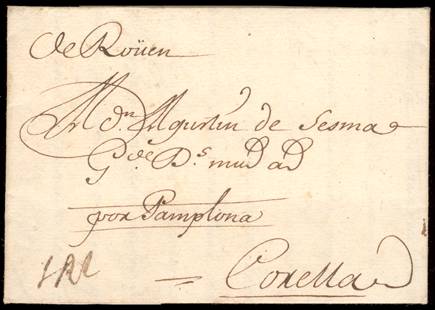 de Roüen
A dn Agustin de Sesma
Gde Ds
por Pamplona
Corella